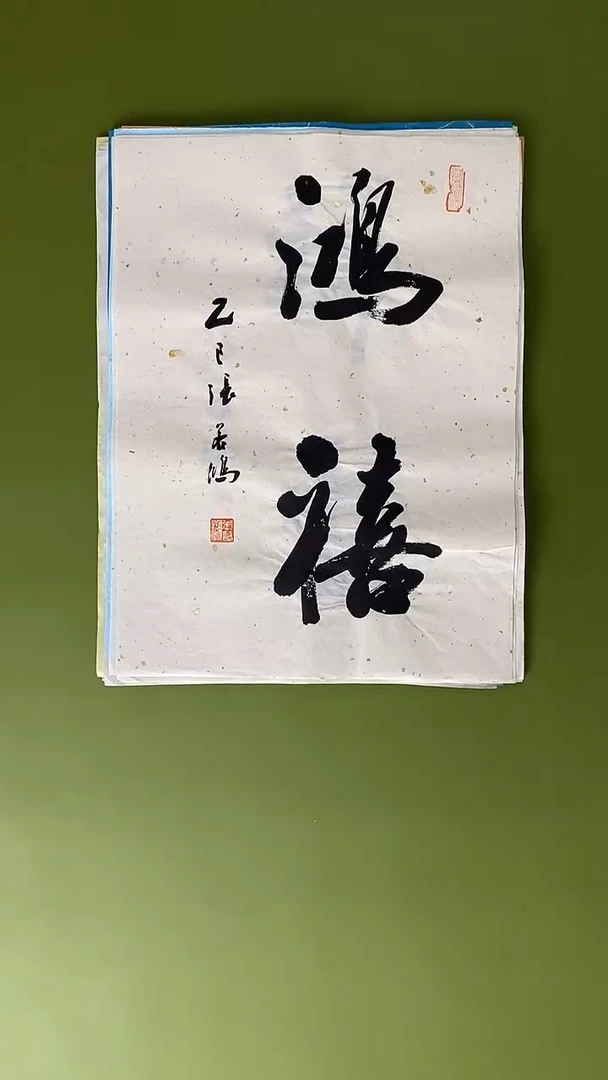 鴻禧
乙巳張若鴻